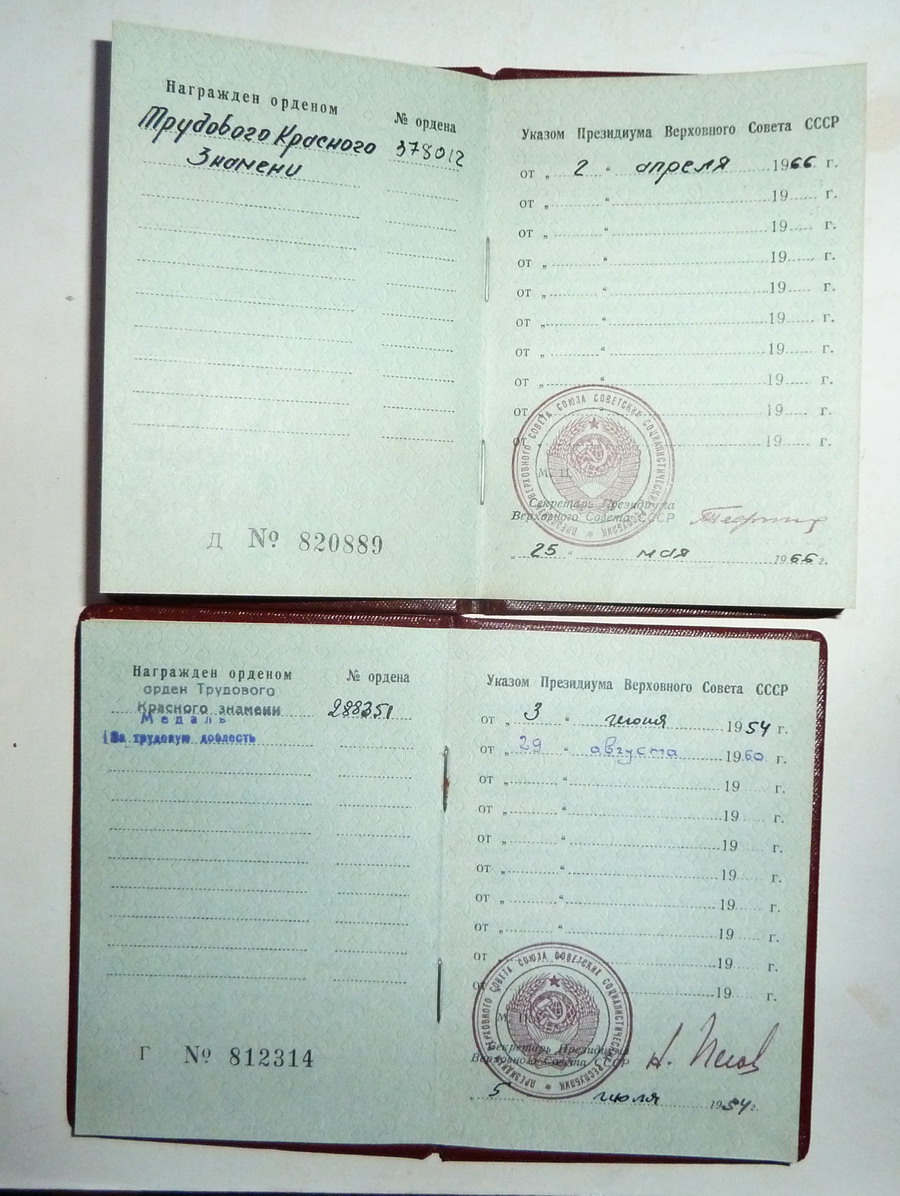 Награжден орденом
№ ордена
Трудового Красного
378012
Знамени
Д № 820889
Указом Президиума Верховного Совета СССР
от „ 2 “ апреля 1966 г.
от „ “ 19 г.
от „ “ 19 г.
от „ “ 19 г.
от „ “ 19 г.
от „ “ 19 г.
от „ “ 19 г.
от „ “ 19 г.
от „ “ 19 г.
от „ “ 19 г.
ПРЕЗИДИУМ ВЕРХОВНОГО СОВЕТА СОЮЗА СОВЕТСКИХ СОЦИАЛИСТИЧЕСКИХ РЕСПУБЛИК
М. П.
Секретарь Президиума
Верховного Совета СССР
„ 25 “ мая 1966 г.
Награжден орденом
№ ордена
орден Трудового
Красного знамени
288351
Медаль
За трудовую доблесть
Г № 812314
Указом Президиума Верховного Совета СССР
от „ 3 “ июня 1954 г.
от „ 29 “ августа 1960 г.
от „ “ 19 г.
от „ “ 19 г.
от „ “ 19 г.
от „ “ 19 г.
от „ “ 19 г.
от „ “ 19 г.
от „ “ 19 г.
от „ “ 19 г.
ПРЕЗИДИУМ ВЕРХОВНОГО СОВЕТА СОЮЗА СОВЕТСКИХ СОЦИАЛИСТИЧЕСКИХ РЕСПУБЛИК
М. П.
Секретарь Президиума
Верховного Совета СССР
Н. Пегов
„ 5 июля 1954 г.